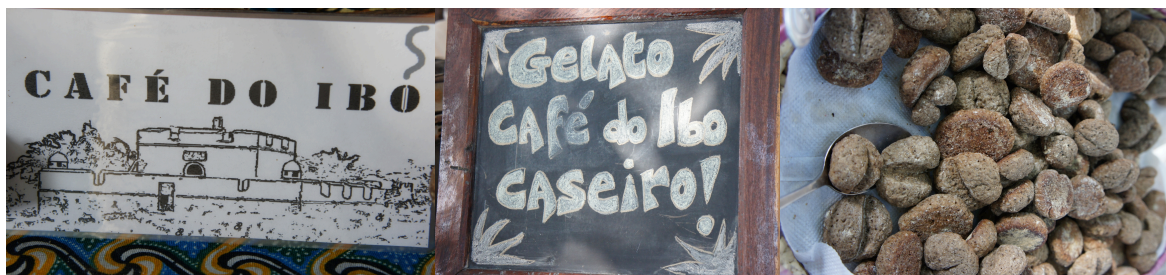 CAFÉ DO IBO
Gelato
Café do Ibo
caseiro!